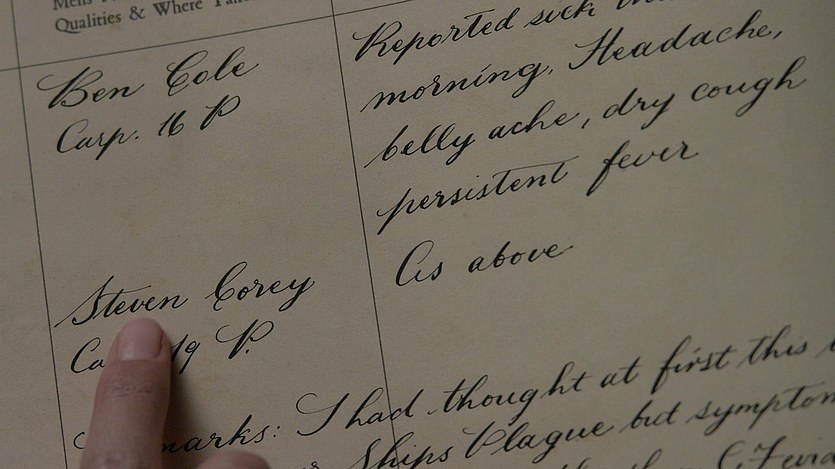 Qualities & Where
Ben Cole
Carp. 16 P
Reported sick
morning. Headache,
belly ache, dry cough
persistent fever
Steven Corey
19 P.
As above
marks: I had thought at first this
Ships Plague but symptom